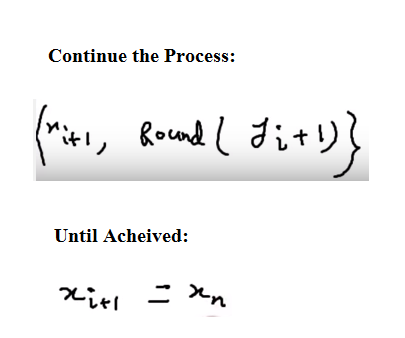 Continue the Process:
{x_{i+1}, Round(y_{i+1})}
Until Acheived:
x_{i+1} = x_n